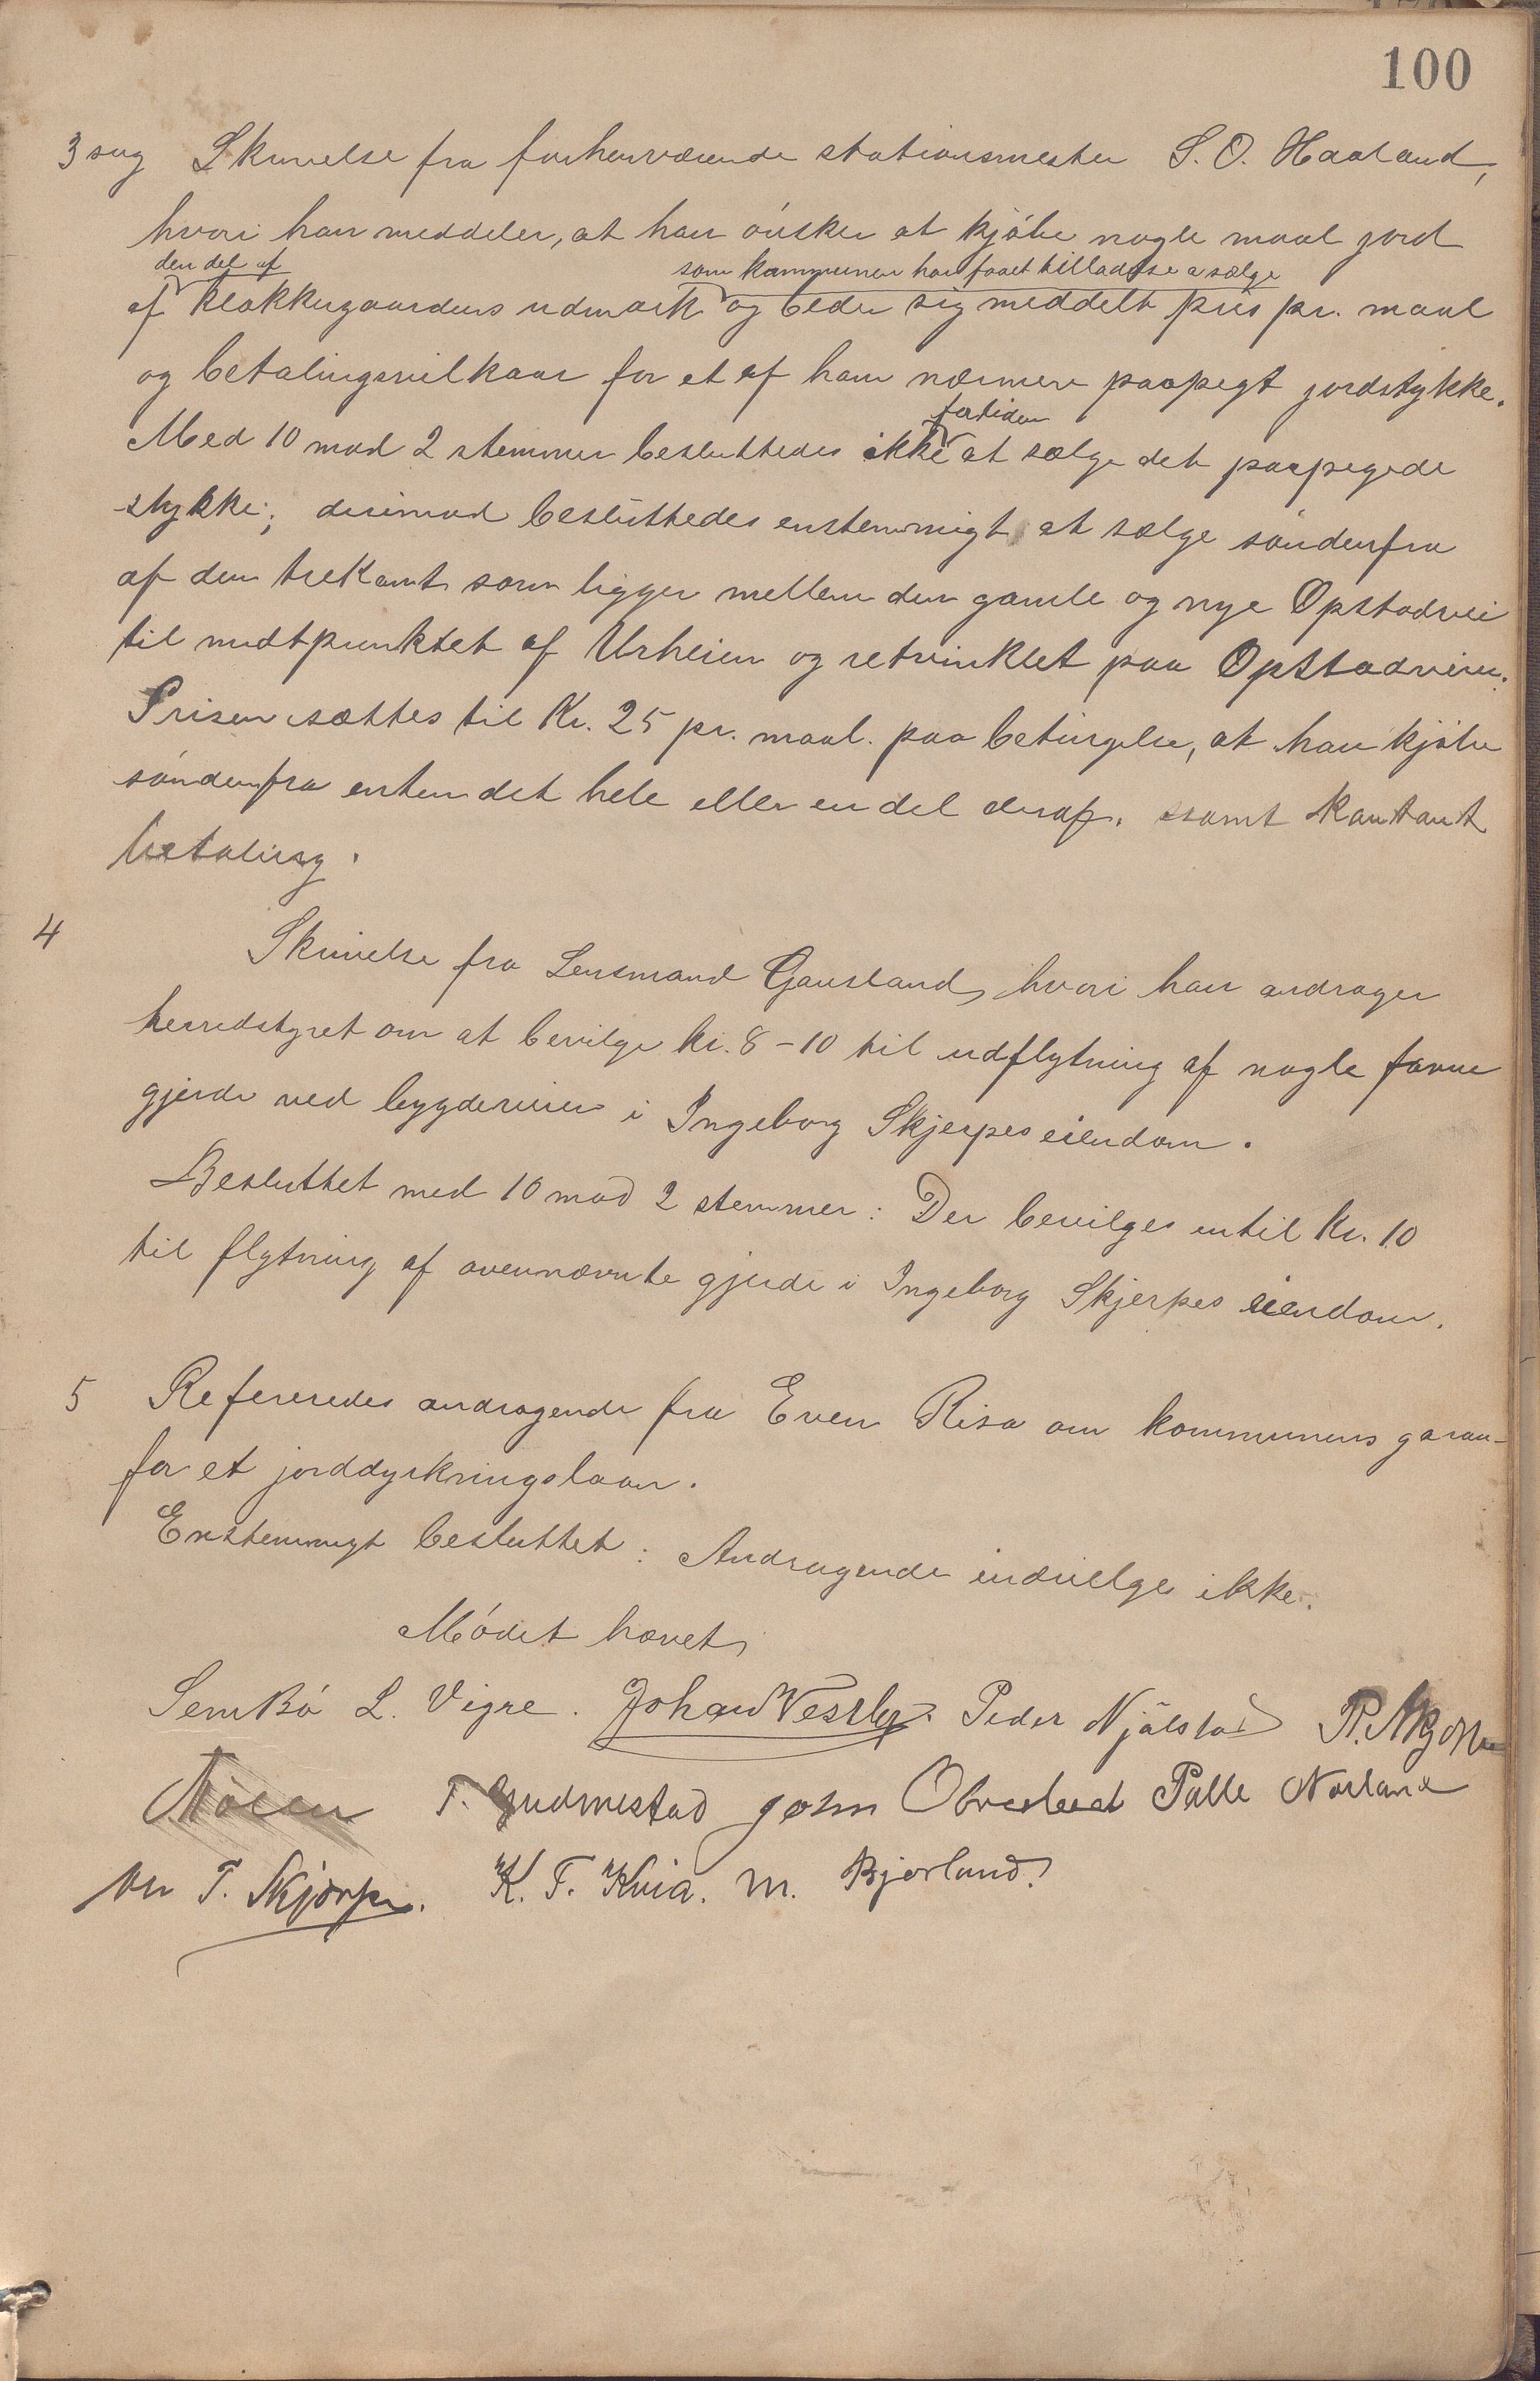 100
3 sag Skrivelse fra forhenværende stationsmester S. O. Haaland,
hvori han meddeler, at han ønsker at kjøbe nogle maal jord
den del af som kommunen har faaet tilladelse a sælge
af klokkergaardens udmark og beder sig meddelt pris pr. maal
og betalingsvilkaar for et af ham nærmere paapegt jordstykke.
fortiden
Med 10 mod 2 stemmer besluttedes ikke at sælge det paapegede
stykke; derimod besluttedes enstemmigt at sælge søndenfra
af den trekant som ligger mellem den gamle og nye Opstadvei
til midtpunktet af Urheien og retvinklet paa Opstadveien.
Prisen sættes til Kr. 25 pr. maal. paa betingelse, at han kjøber
søndenfra enten det hele eller en del deraf. samt kontant
betaling.
4
Skrivelse fra Lensmand Gausland, hvori han andrager
herredstyret om at bevilge kr. 8-10 til udflytning af nogle favne
gjerde ved bygdeveien i Ingeborg Skjerpes eiendom.
Besluttet med 10 mod 2 stemmer: Der bevilges intil Kr. 10
til flytning af ovennævnte gjerde i Ingeborg Skjerpes eiendom.
5 Refereredes andragende fra Even Risa om kommunens garan-
for et jorddyrkningslaan.
Enstemmigt besluttet: Andragende indvilges ikke.
Mødet hævet,
Sem Bø L. Vigre. Johan Vessby. Peder Njølstad
T. Gudmestad John Obrestad Palle Norland
T. Skjærpe. K. T. Kvia. M. Bjorland.